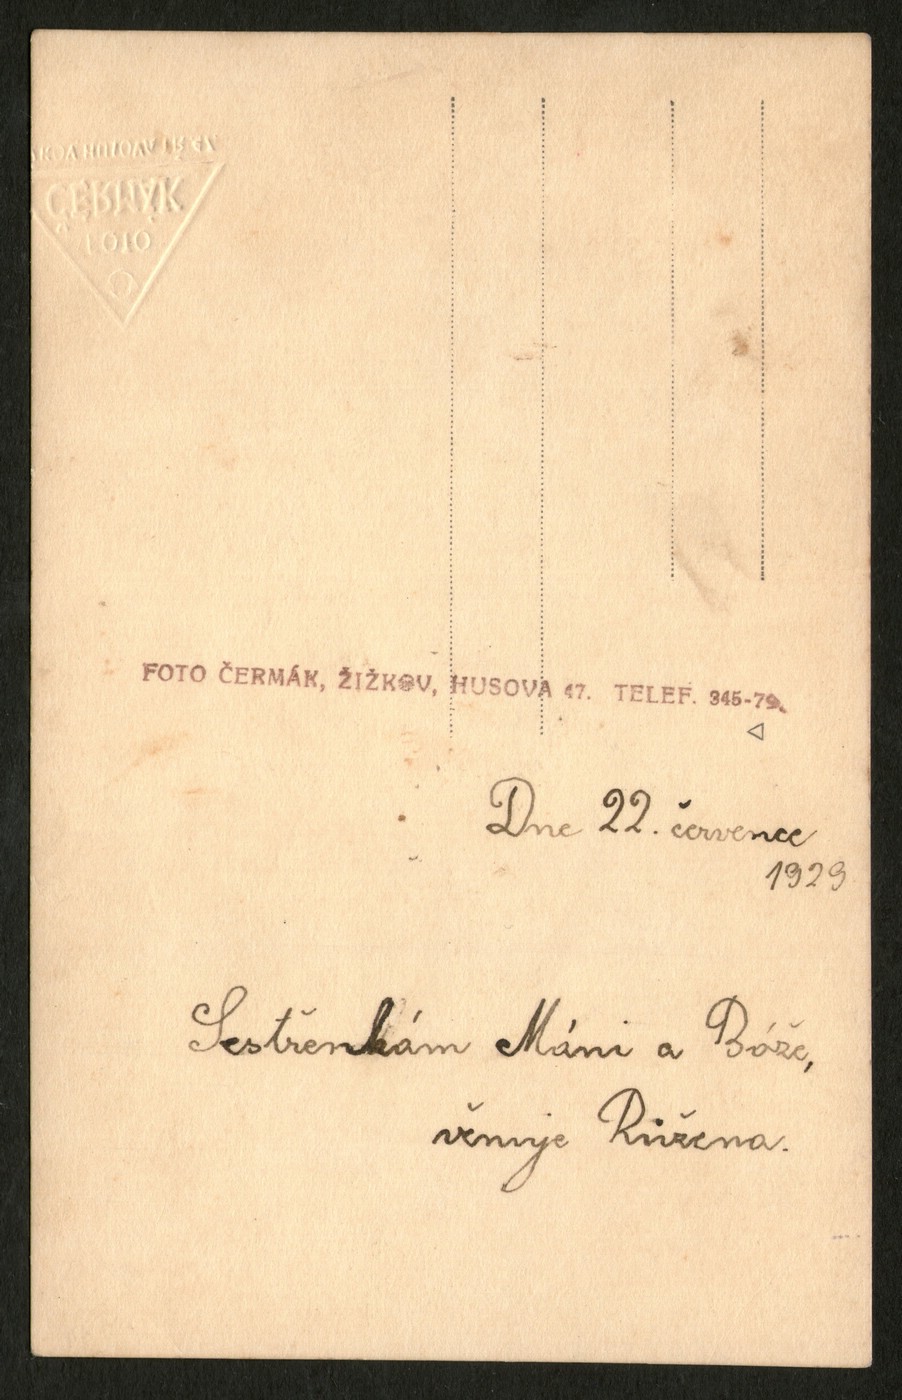 ČERMÁK
FOTO
FOTO ČERMÁK, ŽIŽKOV, HUSOVA 47. TELEF. 345-79.
Dne 22. července
1929
Sestřenkám Máni a Bóže,
věnuje Růžena.